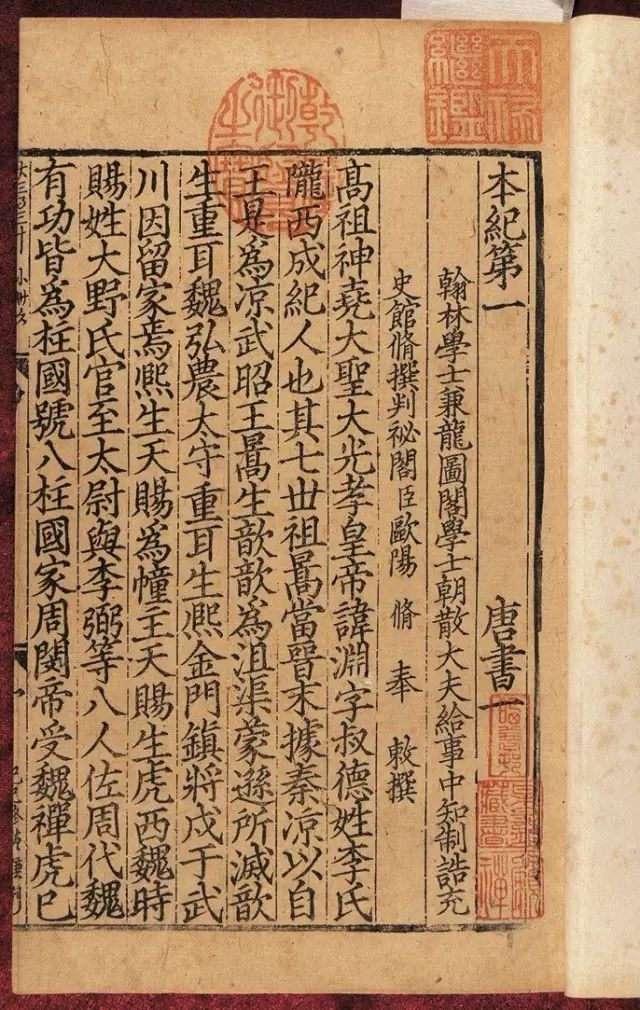 本紀第一 唐書一
翰林學士兼龍圖閣學士朝散大夫給事中知制誥充
史館脩撰判祕閣臣歐陽 脩 奉 敕撰
髙祖神堯大聖大光孝皇帝諱淵字叔德姓李氏
隴西成紀人也其七世祖暠當晉末據秦凉以自
王是爲凉武昭王暠生歆歆爲沮渠蒙遜所滅歆
生重耳魏弘農太守重耳生熈金門鎮將戍于武
川因留家焉熈生天賜爲幢主天賜生虎西魏時
賜姓大野氏官至太尉與李弼等八人佐周代魏
有功皆爲柱國號八柱國家周閔帝受魏禪虎已